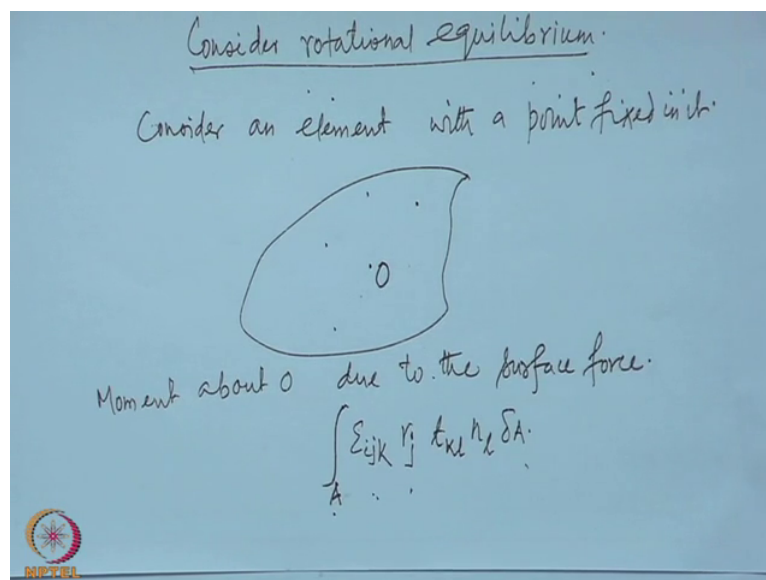 Consider rotational equilibrium.
Consider an element with a point fixed in it.
O
Moment about O due to the surface force.
∫ εijk rj tkl nl δA.
A
NPTEL